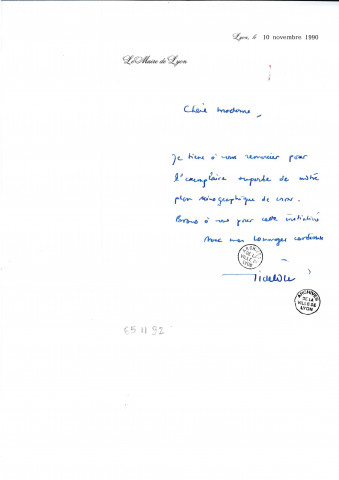 Lyon, le 10 novembre 1990
Le Maire de Lyon
Chère Madame,
Je tiens à vous remercier pour
l'exemplaire superbe de notre
plan scénographique de
Bravo à vous pour cette initiative
Avec mes hommages
ARCHIVES
DE LA
VILLE DE
LYON
ARCHIVES
DE LA
VILLE DE
LYON
65 II 92